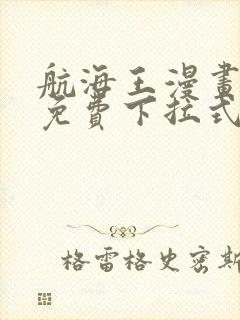 航海王漫畫
免費下拉式
格雷格史密斯